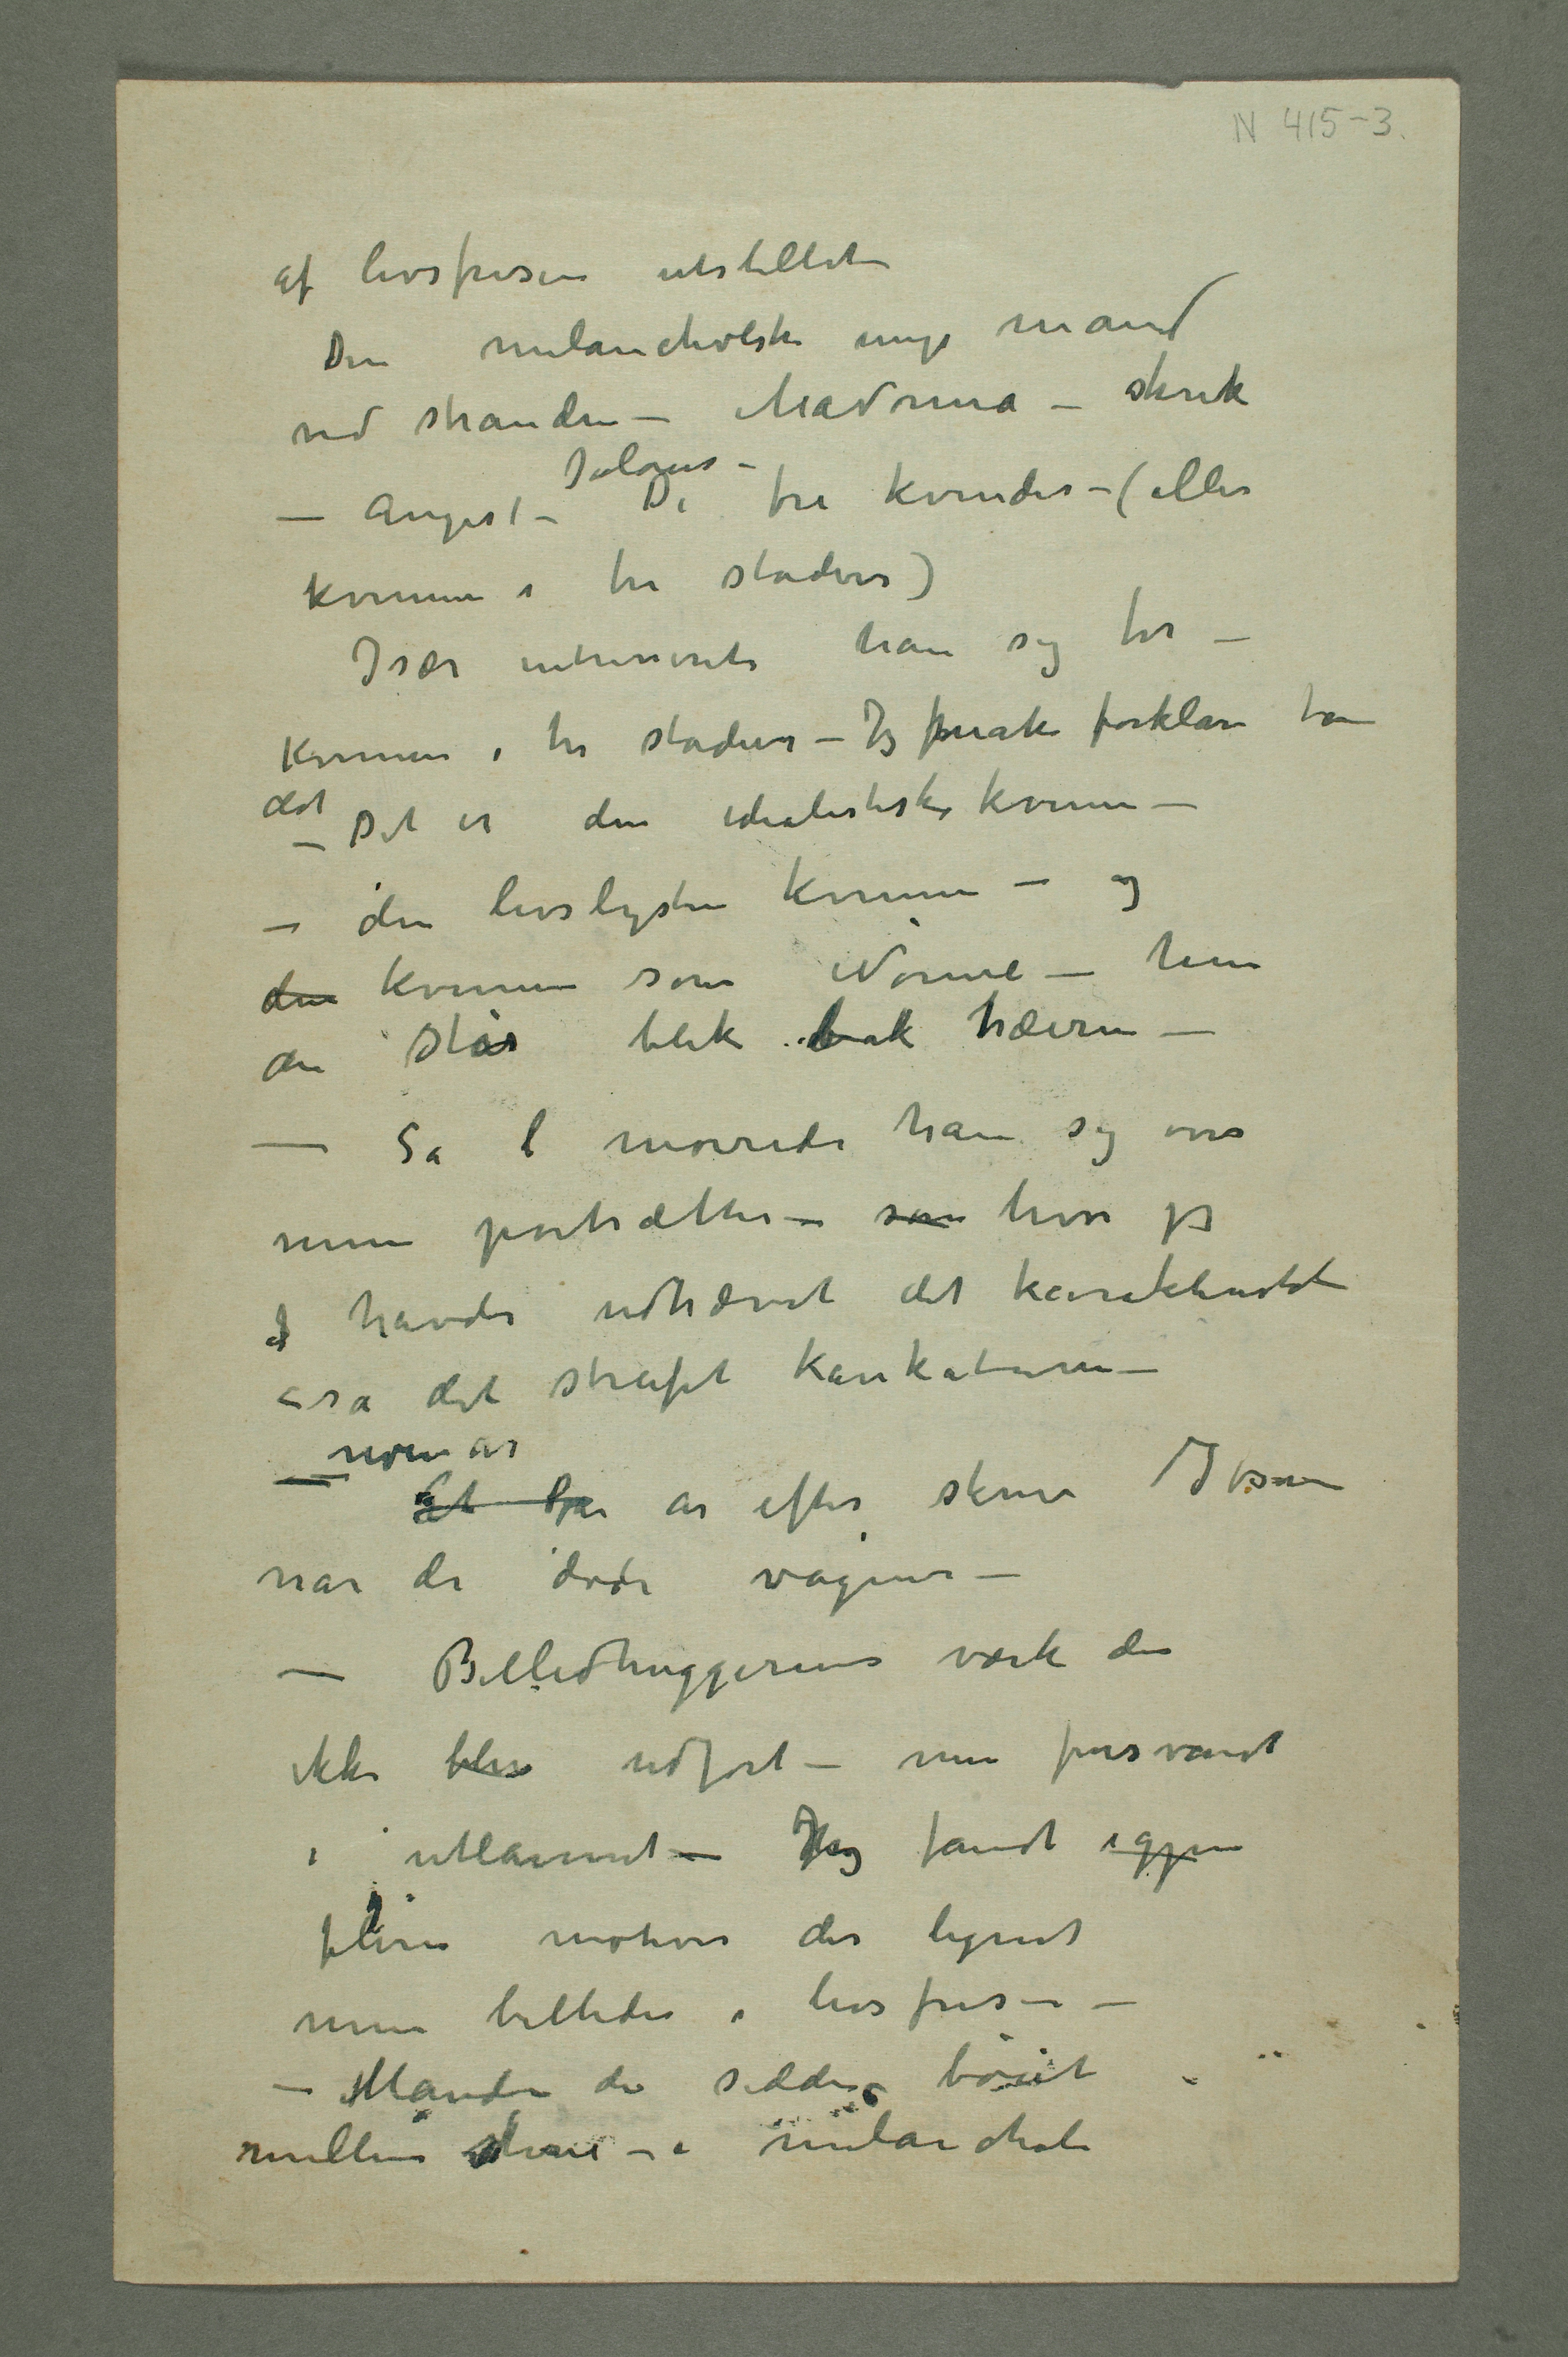 N 415-3.
af livsfrisen utstillet
Den melancholske unge mand
ved stranden – Madonna – skrik
Jalousi –
– Angst – De tre kvinder – (eller
kvinnen i tre stadier)
Især interesserte han sig for –
Kvinnen i tre stadier – Jeg måtte forklare ham
det
– Det er den idealistiske kvinne –
– den livslystne kvinne – og
den kvinnen som Nonne – hun
der står blek bak træerne –
– Så morede han sig over
mine portrætter – som hvor jeg
jeg havde udhævet det karakteristiske
– så det strejfet karikaturen –
– noen år
Et Par år efter skrev Ibsen
når de døde vågner –
– Billedhuggerens værk der
ikke blev udført – men forsvandt
i utlannet – Jeg fandt igjen
flere motiver der lignet
mine billeder i livsfrisen –
– Manden der sidder bøiet
mellem stene – i melancholi